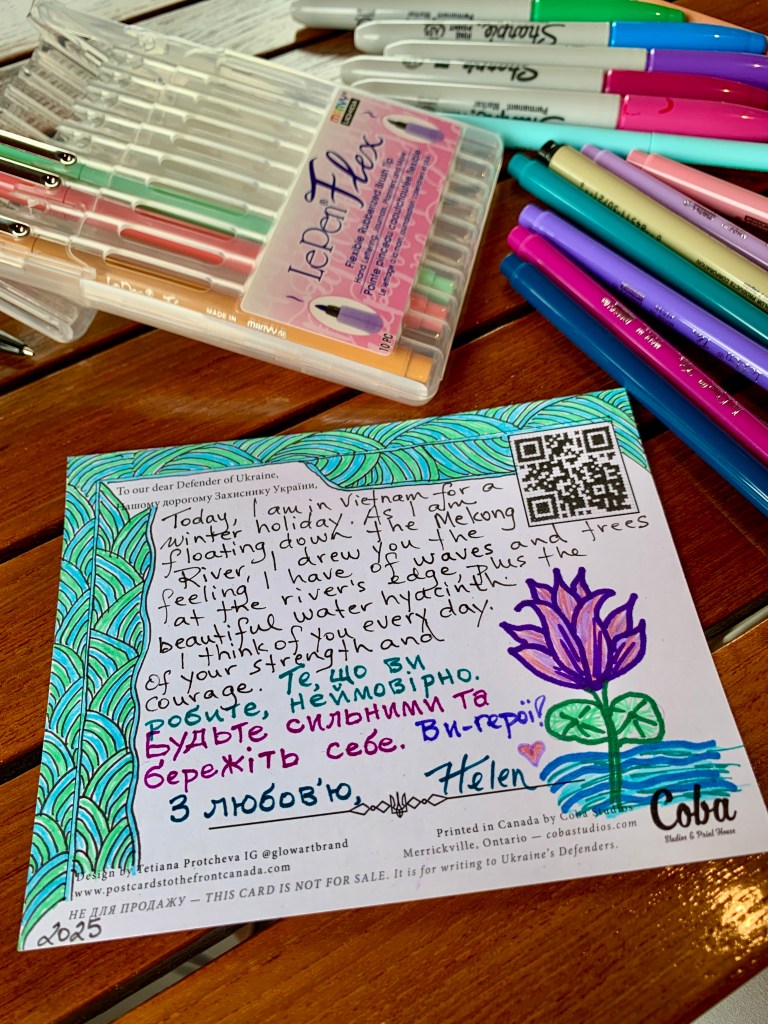 Sharpie.
FINE POINT
Permanent Marker
Sharpie
Permanent Marker
LePen® Flex
Flexible Rubberized Brush Tip
Hand Lettering, Journals, Planners and More
Pointe pinceau caoutchoutée flexible
10 PC
MADE IN
marvy
To our dear Defender of Ukraine,
Нашому дорогому Захиснику України,
Today, I am in Vietnam for a
winter holiday. As I am
floating down the Mekong
River, I drew you the
feeling I have of waves and trees
at the river's edge, plus the
beautiful water hyacinth.
I think of you every day.
of your strength and
courage. Те, що ви
робите, неймовірно.
Будьте сильними та
бережіть себе. Ви-герої!
З любов'ю, Helen
Design by Tetiana Protcheva IG @glowartbrand
www.postcardstothefrontcanada.com
Printed in Canada by Coba Studios
Merrickville, Ontario — cobastudios.com
Coba
Studios & Print House
НЕ ДЛЯ ПРОДАЖУ — THIS CARD IS NOT FOR SALE. It is for writing to Ukraine's Defenders.
2025